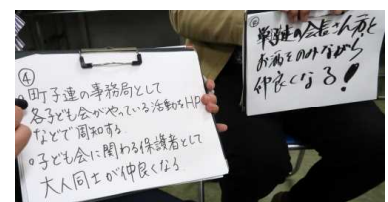 ④
○町子連の事務局として
各子ども会がやっている活動をHP
などで周知する.
○子ども会に関わる保護者として
大人同士が仲良くなる
⑥
単子連の会長さん方と
お酒をのみながら
仲良くなる!